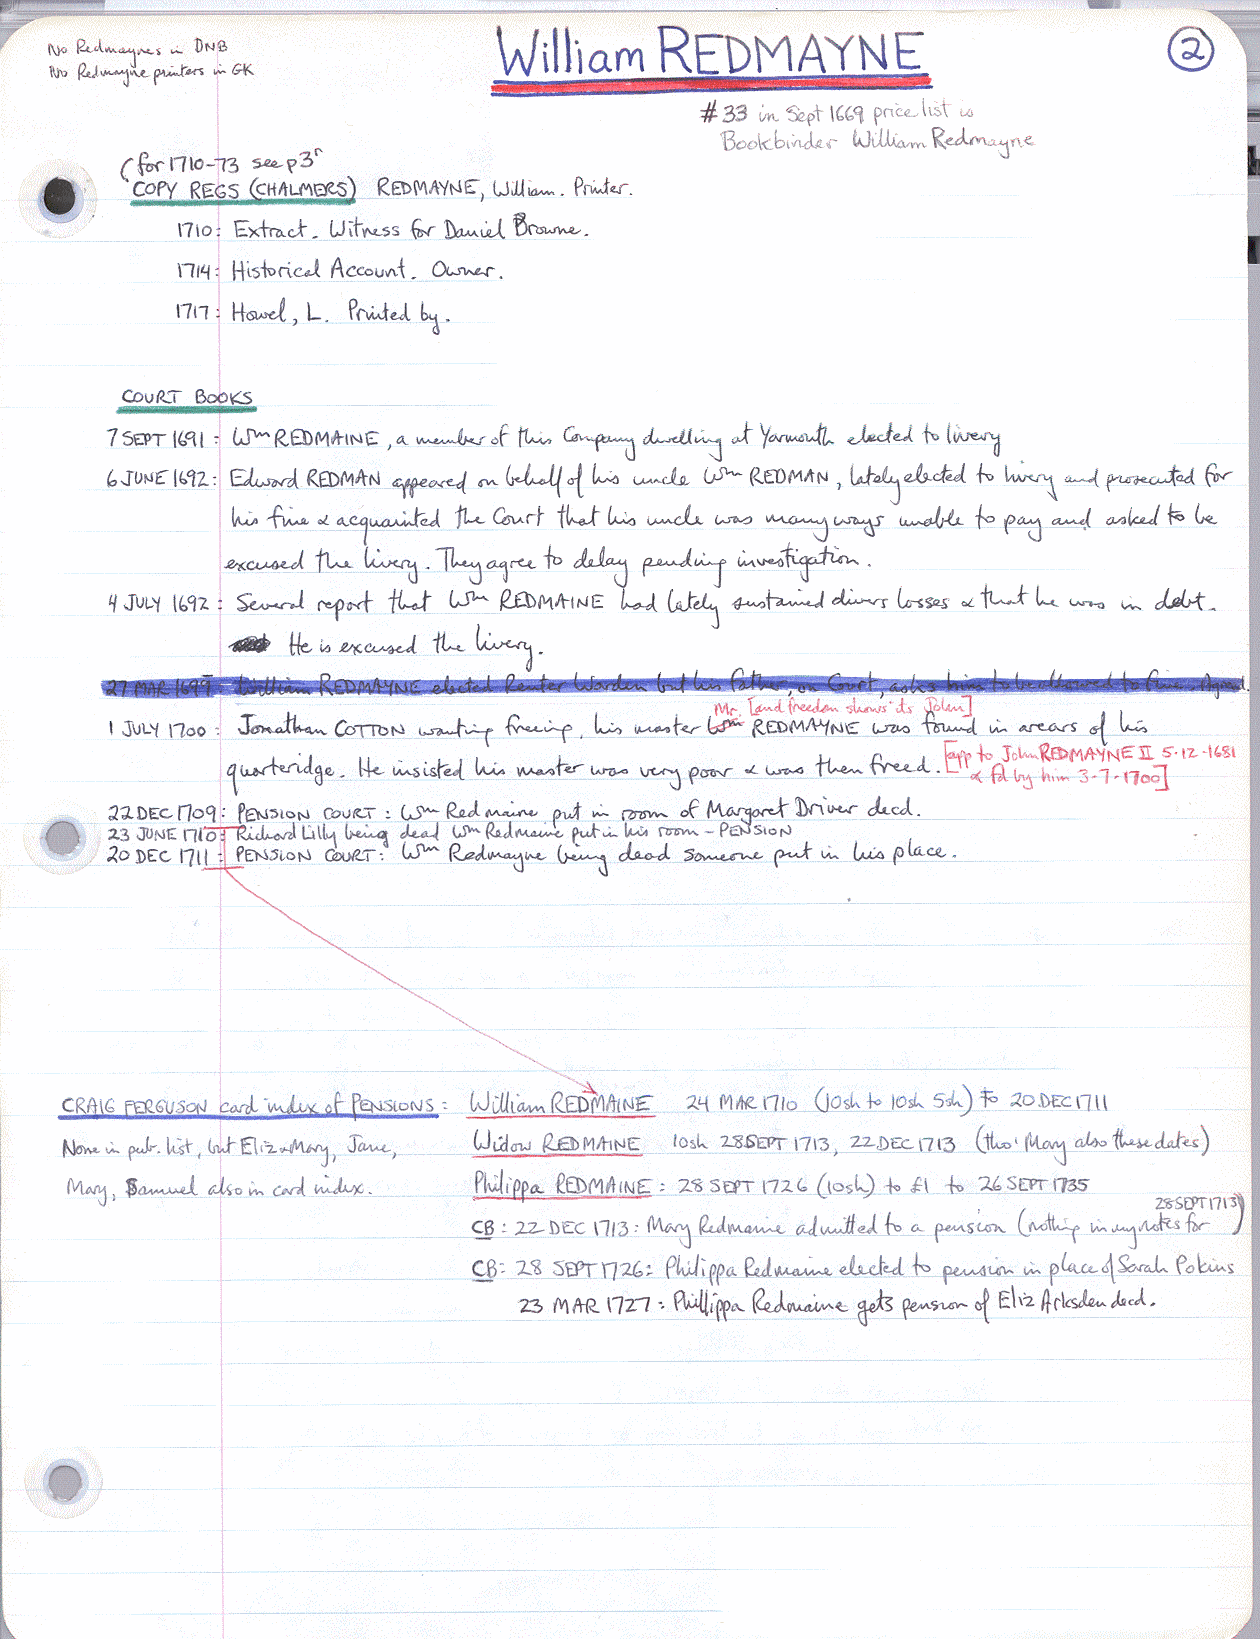 No Redmaynes in DNB
No Redmayne printers in GK
William REDMAYNE
2
#33 in Sept 1669 price list is
Bookbinder William Redmayne
(for 1710-73 see p3r
COPY REGS (CHALMERS) REDMAYNE, William. Printer.
1710: Extract. Witness for Daniel Browne.
1714: Historical Account. Owner.
1717: Howel, L. Printed by.
COURT BOOKS
7 SEPT 1691: Wm REDMAINE, a member of this Company dwelling at Yarmouth elected to livery
6 JUNE 1692: Edward REDMAN appeared on behalf of his uncle Wm REDMAN, lately elected to livery and prosecuted for
his fine & acquainted the Court that his uncle was many ways unable to pay and asked to be
excused the livery. They agree to delay pending investigation.
4 JULY 1692: Several report that Wm REDMAINE had lately sustained divers losses & that he was in debt.
He is excused the livery.
27 MAR 1699 - William REDMAYNE elected Renter Warden but his father, on Court, asks him to be allowed to fine. Agreed.
Mr. [and freedom shows its John]
1 JULY 1700: Jonathan COTTON wanting freeing, his master Wm REDMAYNE was found in arears of his
quarteridge. He insisted his master was very poor & was then freed. [app to John REDMAYNE II 5-12-1681
& fd by him 3-7-1700]
22 DEC 1709: PENSION COURT: Wm Redmaine put in room of Margaret Driver decd.
23 JUNE 1710: Richard Lilly being dead Wm Redmaine put in his room - PENSION
20 DEC 1711: PENSION COURT: Wm Redmayne being dead someone put in his place.
CRAIG FERGUSON card index of PENSIONS: William REDMAINE 24 MAR 1710 (10sh to 10sh 5sh) to 20 DEC 1711
None in pub. list, but Eliz & Mary, Jane, Widow REDMAINE 10sh 28 SEPT 1713, 22 DEC 1713 (tho' Mary also these dates)
Mary, Samuel also in card index. Philippa REDMAINE: 28 SEPT 1726 (10sh) to £1 to 26 SEPT 1735
28 SEPT 1713)
CB: 22 DEC 1713: Mary Redmaine admitted to a pension (nothing in my notes for
CB: 28 SEPT 1726: Philippa Redmaine elected to pension in place of Sarah Pokins
23 MAR 1727: Phillippa Redmaine gets pension of Eliz Arksden decd.